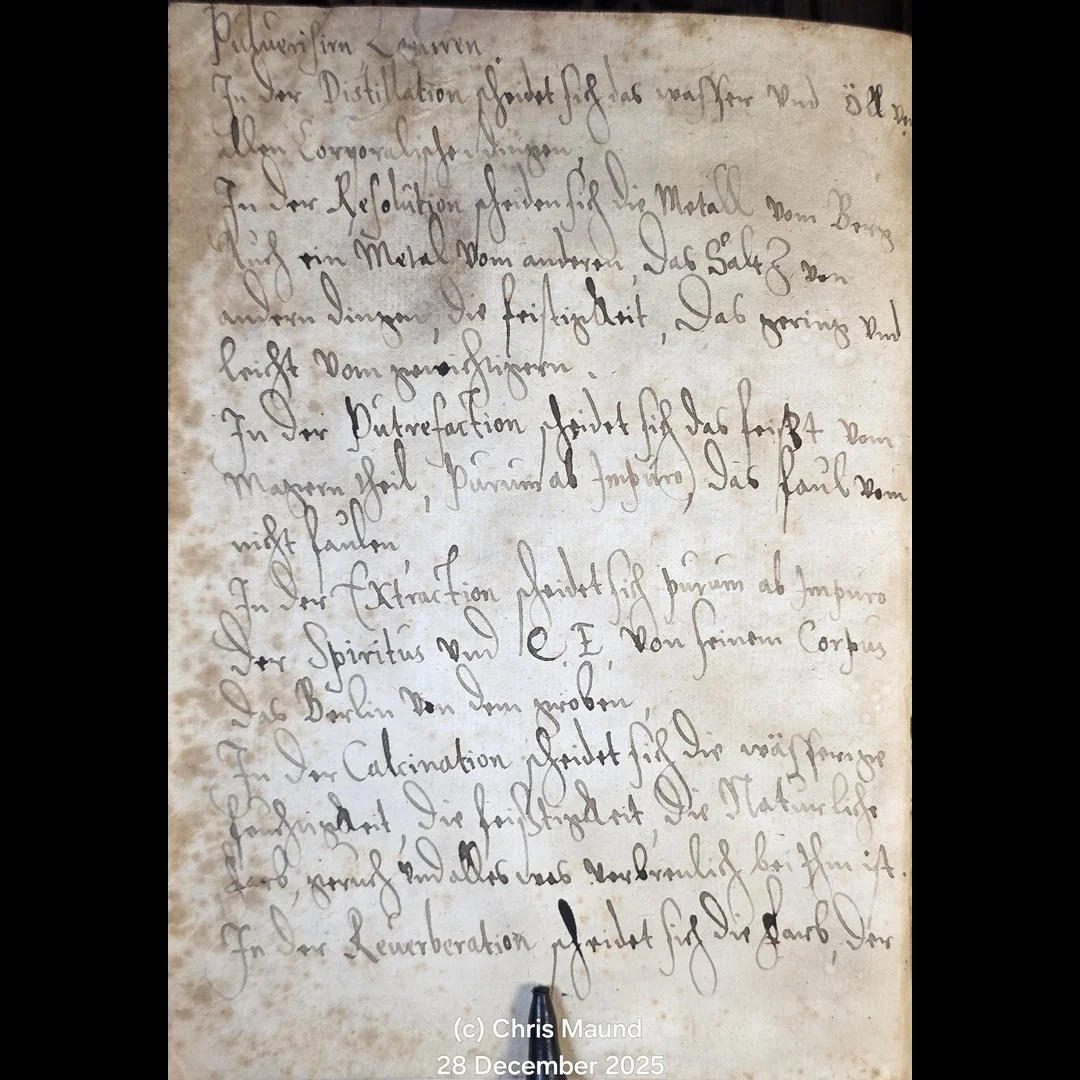 Puluerisirn
In der Distillation scheidet sich das wasser Vnd Öll von
allen Corporalischen dingen,
In der Resolution scheiden sich die Metall vom Berg
Auch ein Metal Vom anderen, das Saltz von
andern dingen, die feistigkeit, Das gering Vnd
leicht Vom gewichtigern.
In der Putrefaction scheidet sich das feißt vom
Magern theil, Purum ab Impuro, das faul vom
nicht faulen,
In der Extraction scheidet sich purum ab Impuro
Der Spiritus vnd Q. E. Von seinem Corpus
das Berlin Von dem groben,
In der Calcination scheidet sich die wässerige
feuchtigkeit, die feißtigkeit, die Natürliche
farb, geruch Vnd alles was verbrenlich bei Ihm ist.
In der Reuerberation scheidet sich die farb, der
(c) Chris Maund
28 December 2025